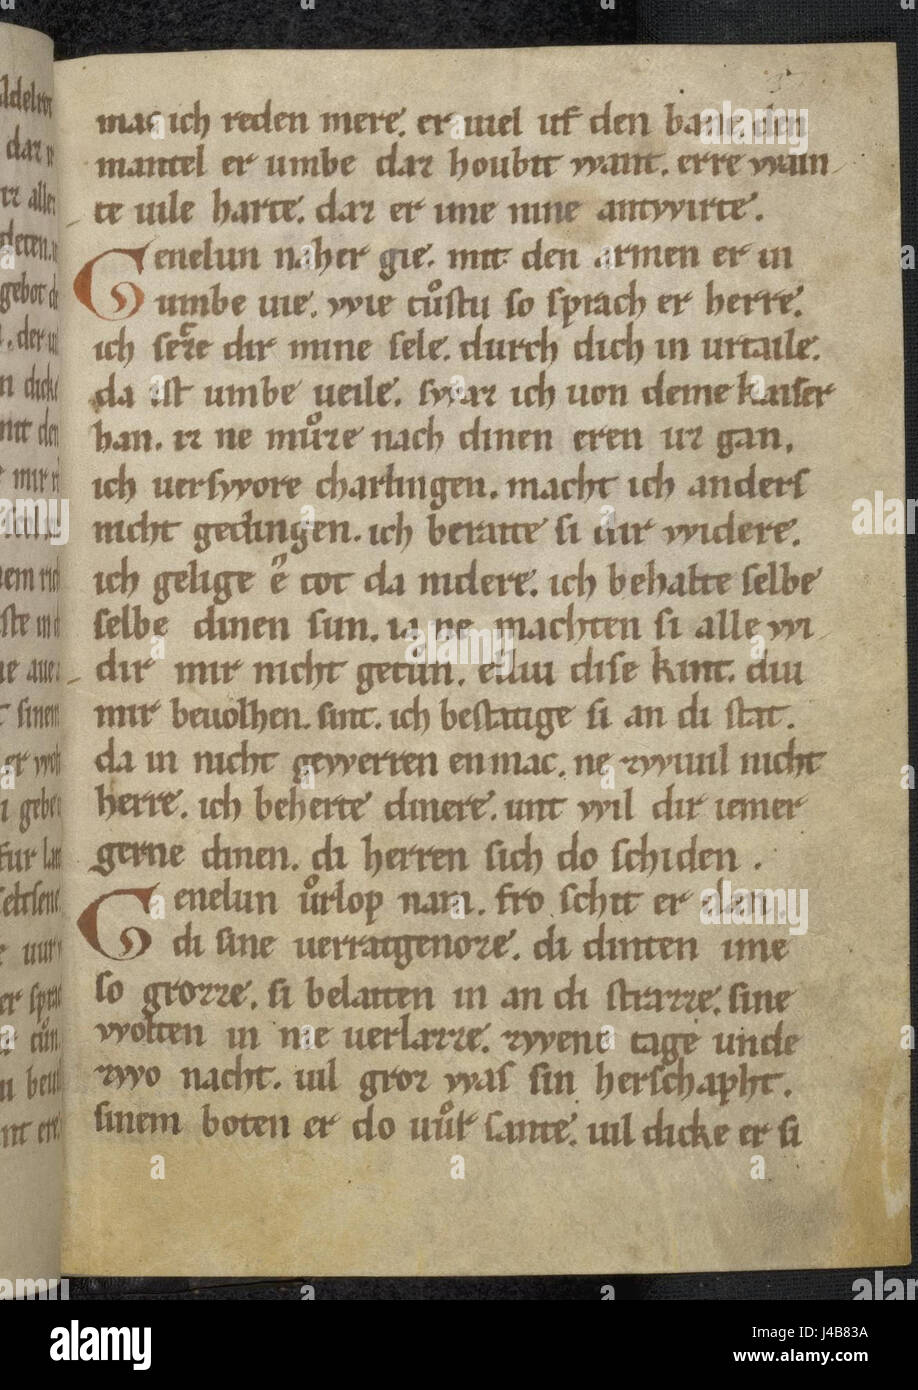 mac ich reden mere. er uiel uf den banc. den
mantel er umbe daz houbit want. erre wain
te uile harte. daz er ime nine antwirte.
Genelun naher gie. mit den armen er in
umbe uie. wie tůstu so sprach er herre.
ich seze dir mine sele. durch dich in urtaile.
da ist umbe ueile. swaz ich uon deme kaiser
han. iz ne můze nach dinen eren uz gan.
ich uerswore charlingen. macht ich anders
nicht gedingen. ich beraite si dir widere.
ich gelige e tot da nidere. ich behalte selbe
selbe dinen sun. ia ne machten si alle wi
dir mir nicht getůn. elliu dise kint. diu
mir beuolhen sint. ich bestatige si an di stat.
da in nicht gewerren en mac. ne zwiuil nicht
herre. ich beherte din ere. unt wil dir iemer
gerne dinen. di herren sich do schiden.
Genelun ůrlop nam. fro schit er dan.
di sine uerratgenoze. di duhten ime
so grozze. si belaiten in an di strazze. sine
wolten in nie uerlazze. zwene tage unde
zwo nacht. uil groz was sin herschapht.
sinem boten er do uůr sante. uil dicke er si
alamy
Image ID: J4B83A
www.alamy.com